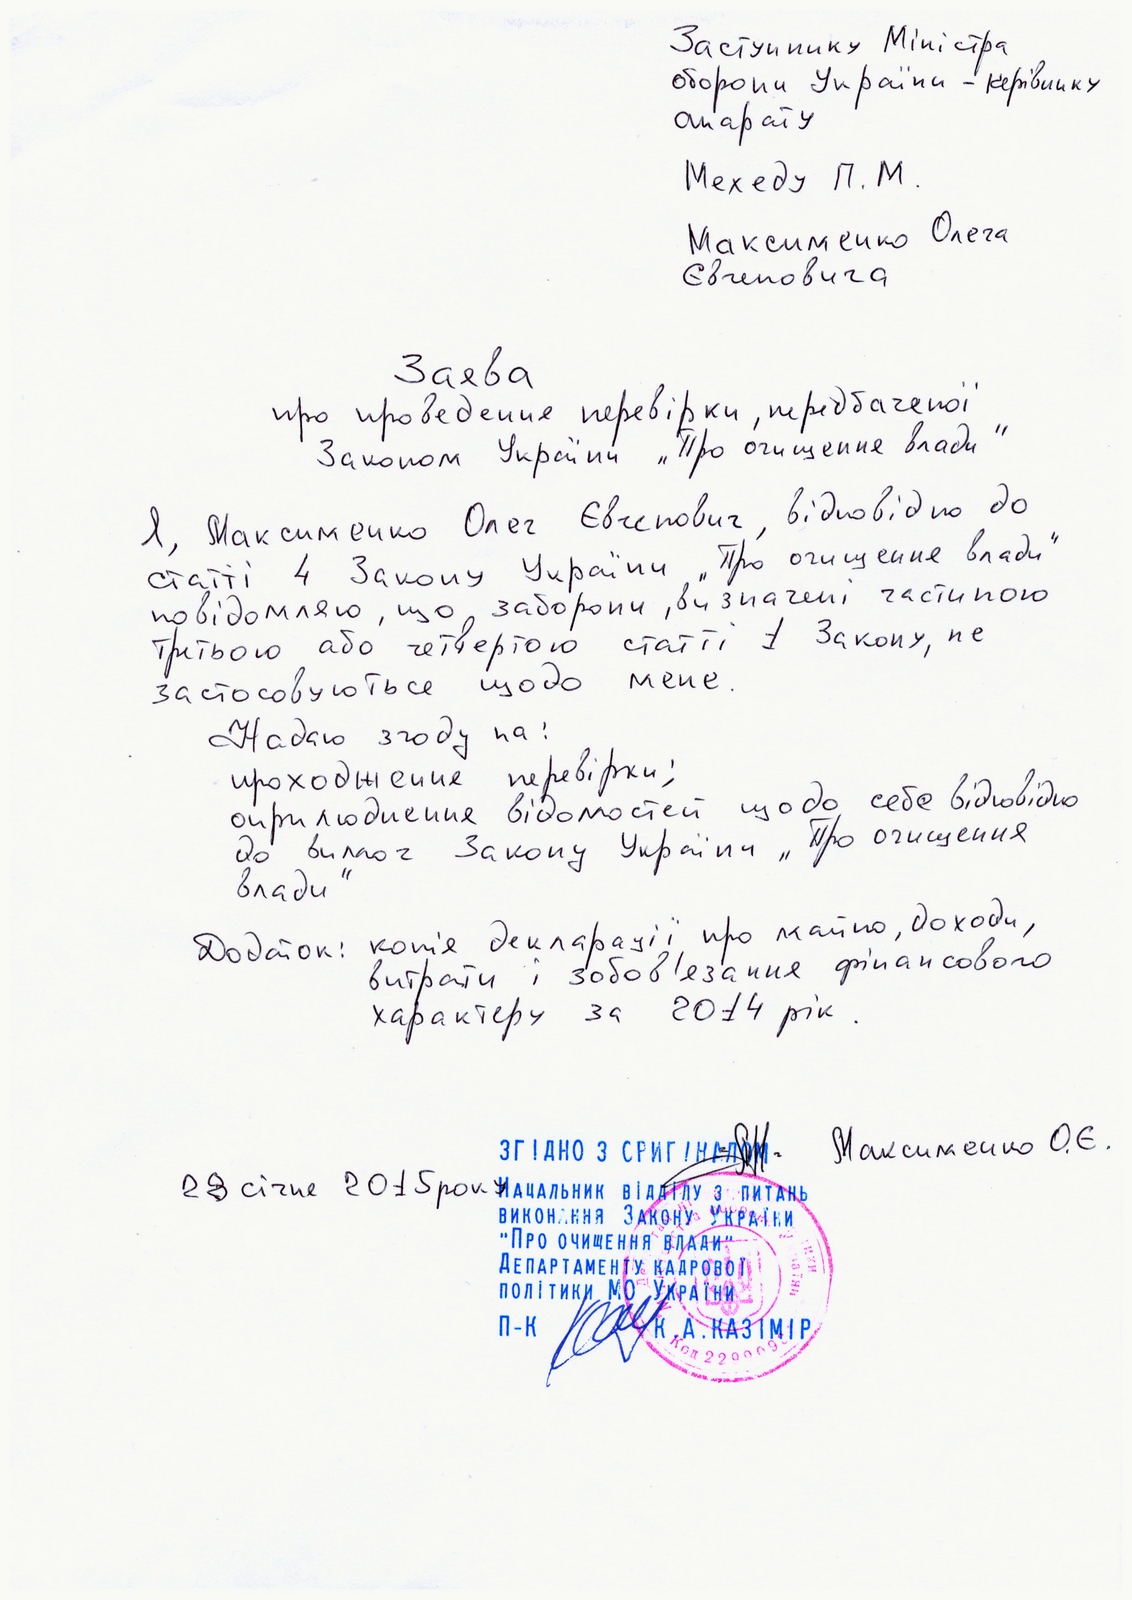 Заступнику Міністра
оборони України – керівнику
апарату
Мехеду П.М.
Максименко Олега
Євгеновича
Заява
про проведення перевірки, передбаченої
Законом України „Про очищення влади"
Я, Максименко Олег Євгенович, відповідно до
статті 4 Закону України „Про очищення влади"
повідомляю, що заборони, визначені частиною
третьою або четвертою статті 1 Закону, не
застосовуються щодо мене.
Надаю згоду на:
проходження перевірки;
оприлюднення відомостей щодо себе відповідно
до вимог Закону України „Про очищення
влади"
Додаток: копія декларації про майно, доходи,
витрати і зобов'язання фінансового
характеру за 2014 рік.
ЗГІДНО З ОРИГІНАЛОМ
Максименко О.Є.
січня 2015 року
НАЧАЛЬНИК ВІДДІЛУ З ПИТАНЬ
ВИКОНАННЯ ЗАКОНУ УКРАЇНИ
"ПРО ОЧИЩЕННЯ ВЛАДИ"
ДЕПАРТАМЕНТУ КАДРОВОЇ
ПОЛІТИКИ МО УКРАЇНИ
П-К К.А.КАЗІМІР